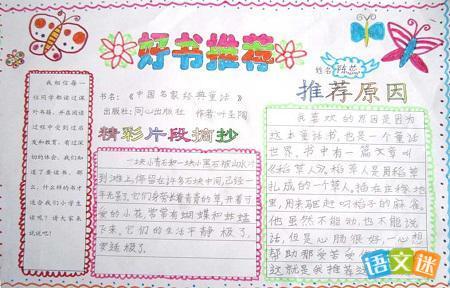 好书推荐
姓名:陈蕊
我相信每一
位同学都读过课
外书籍，并在阅读
过程中受到过启
发和教育，有过深
刻的体会。我们知
道了要读书，那
么，什么样的书才
适合我们小学生
读呢？请大家来
说说吧！
书名:《中国名家经典童话》
出版社:同心出版社 作者:叶圣陶
精彩片段摘抄
一块小青石和一块小黑石被冰川
到滩上,停留在许多石块中间,已经一
年光景了。它们身旁长着青青的草,开着可
爱的小花,常常有蝴蝶和蛙蛙
下来。它们的生活平静极了,
安适极了。
推荐原因
我喜欢的原因是因为
这本童话书,也是一个童话
世界。书中有一篇文章叫
《稻草人》,稻草人是用稻草
扎成的一个草人,插在庄稼地
里,用来驱赶叼稻子的麻雀。
他虽然不能动,也不能说
话,但是心肠很好,一心想
帮助那受苦受
这就是我推荐这
语文迷